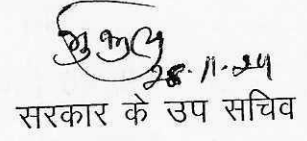 28.11.24
सरकार के उप सचिव